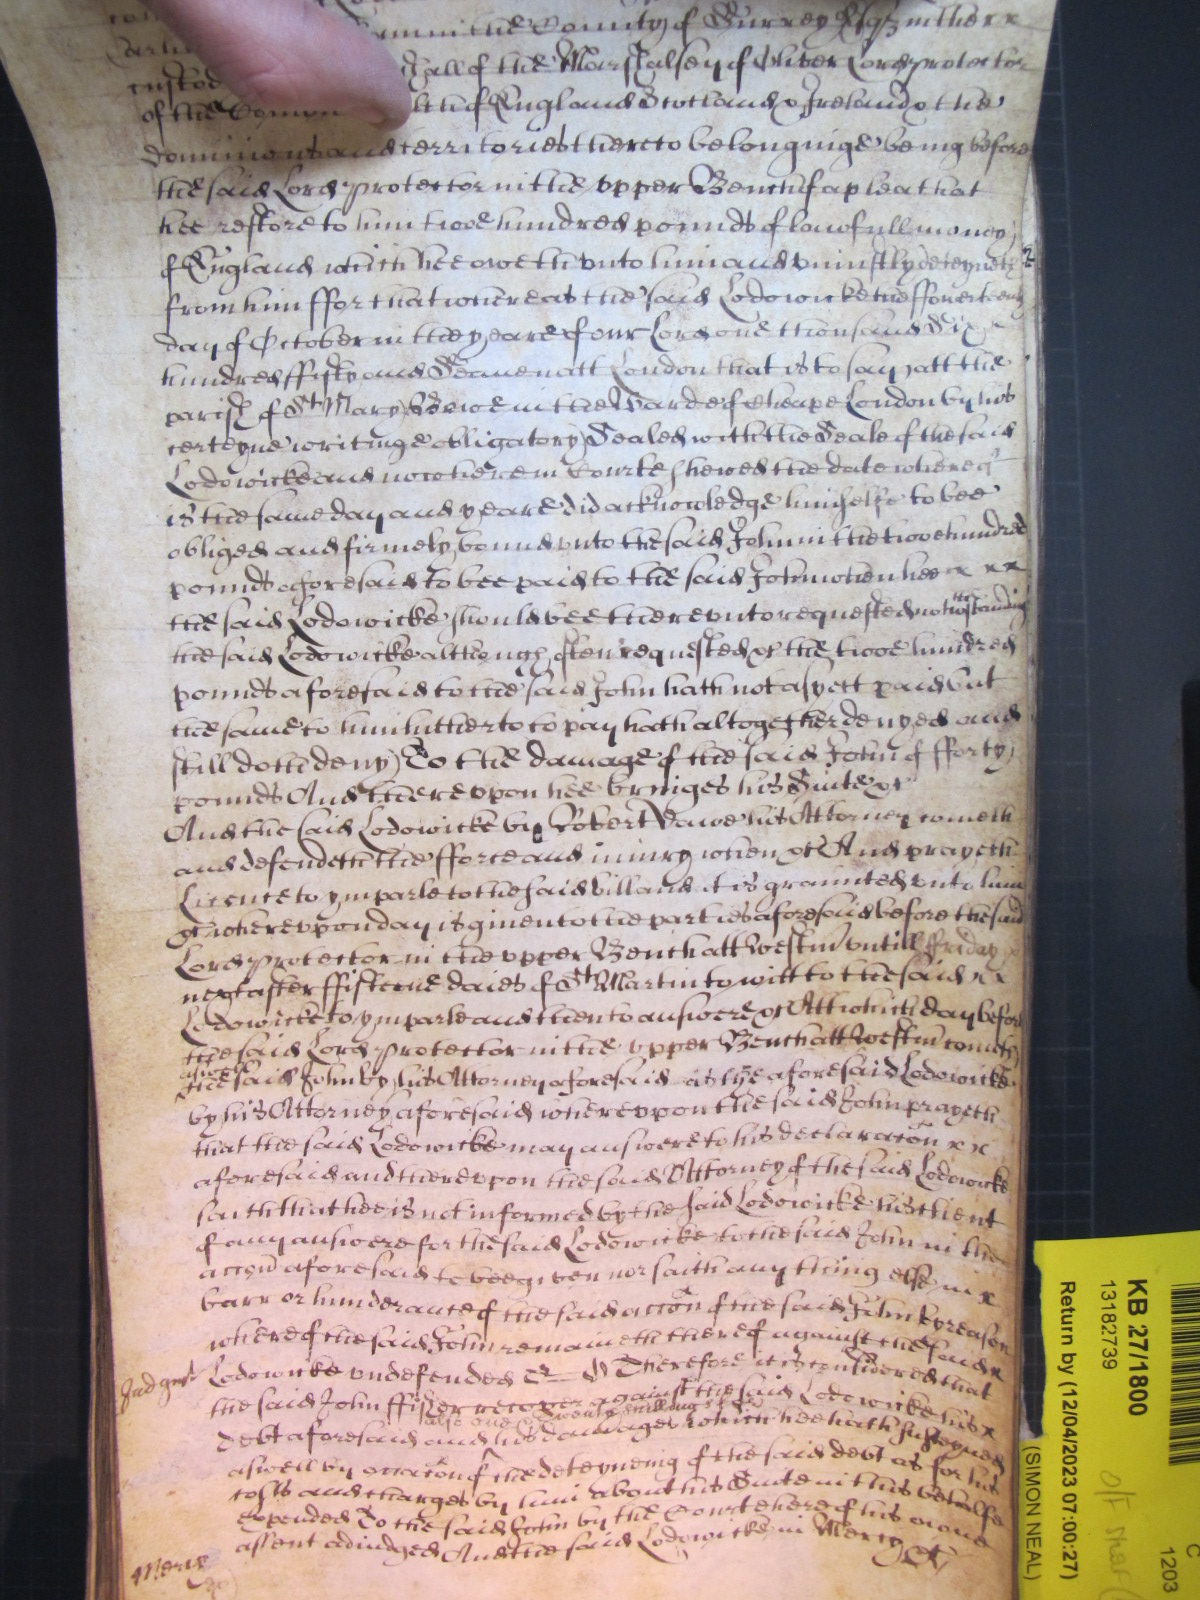 in the County of Surrey Esqr in the x x
custod all of the Marshalsey of Oliver Lord protector
of the Common lth of England Scotland & Ireland & the
dominions and territories thereto belonginge being before
the said Lord protector in the vpper Bench of a plea that
hee restore to him twoe hundred pounds of lawfull money
of England which hee oweth vnto him and vniustly deteyneth
from him ffor that whereas the said Lodowicke the ffowerteenth
day of October in the yeare of our Lord one thousand Six x
hundred ffifty and Seaven att London that is to say att the
parish of St Mary Bowe in the Warde of Cheape London by his
certeyne writinge obligatory Sealed with the Seale of the said
Lodowicke and nowe here in Courte shewed the date whereof
is the same day and yeare did acknowledge himselfe to bee
obliged and firmely bound vnto the said John in the twoe hundred
pounds aforesaid To bee paid to the said John when hee x x x
the said Lodowicke should bee therevnto requested notwithstanding
the said Lodowicke although often requested &c the twoe hundred
pounds aforesaid to the said John hath not as yett paid but
the same to him hitherto to pay hath altogether denyed and
still doth deny To the damage of the said John of fforty
pounds And therevpon hee bringes his Suite &c
And the said Lodowicke by Robert Dawe his Attorney cometh
and defendeth the fforce and iniury when &c And prayeth
Licence to ymparle to the said bill and it is graunted vnto him
&c wherevpon day is giuen to the parties aforesaid before the said
Lord protector in the vpper Bench att Westm vntill ffriday x
next after ffifteene daies of St Martin to witt to the said x x
Lodowicke to ymparle and then to answere &c Att which day before
the said Lord protector in the vpper Bench att Westm cometh
aswell
the said John by his Attorney aforesaid as the aforesaid Lodowicke
by his Attorney aforesaid wherevpon the said John prayeth
that the said Lodowicke may answere to his declaracon x x
aforesaid and therevpon the said Attorney of the said Lodowicke
saith that hee is not informed by the said Lodowicke his Client
of any answere for the said Lodowicke to the said John in the
accon aforesaid to bee given nor saith any thing else in x
barr or hinderance of the said accon of the said John by reason
whereof the said John remaineth thereof against the said x
Judgmt Lodowicke vndefended &c Therefore it is considered that
the said John ffisher recover against the said Lodowicke his x
debt aforesaid and his damages which hee hath susteyned
aswell by occacon of the deteyneing of the said debt as for his
costs and charges by him about his Suite in this behalfe
expended To the said John by the Court here of his owne
assent adiudged And the said Lodowicke in Mercy &c
Mercy
KB 27/1800
13182739
Return by (12/04/2023 07:00:27)
(SIMON NEAL)
C
1203